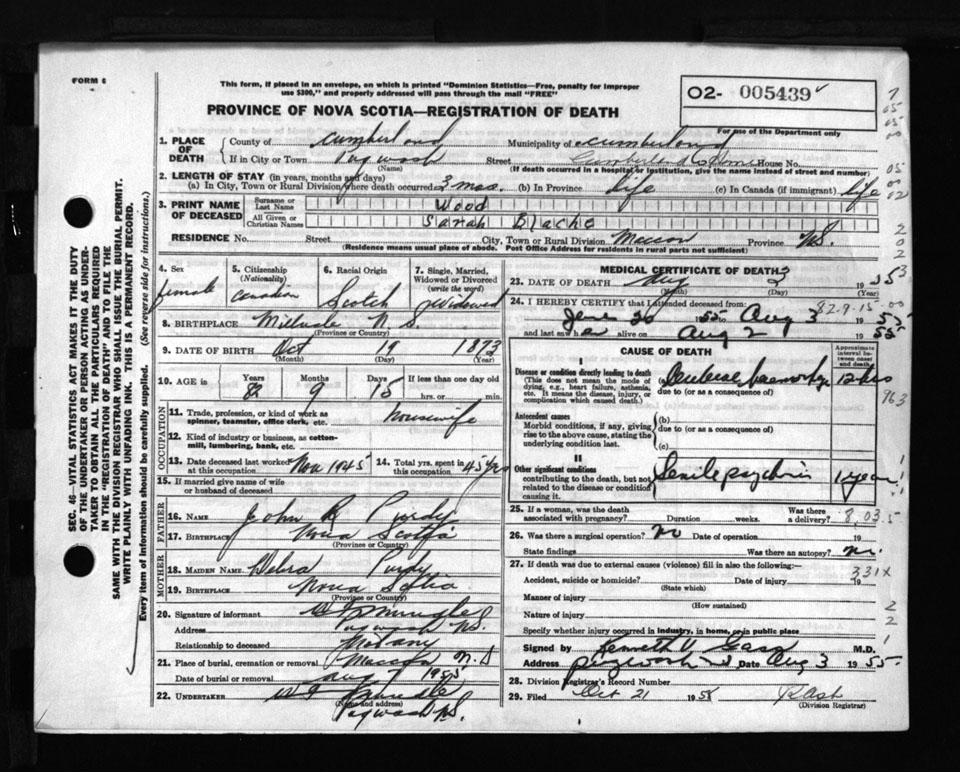 FORM 6
This form, if placed in an envelope, on which is printed "Dominion Statistics—Free, penalty for improper
use $300," and properly addressed will pass through the mail "FREE"
PROVINCE OF NOVA SCOTIA—REGISTRATION OF DEATH
O2- 005439
For use of the Department only
1. PLACE OF DEATH
County of Cumberland Municipality of Cumberland
If in City or Town Pugwash Street Cumberland Home House No.
(Name) (If death occurred in a hospital or institution, give its name instead of street and number)
2. LENGTH OF STAY (in years, months and days)
(a) In City, Town or Rural Division where death occurred 3 mos. (b) in Province life (c) in Canada (if immigrant) life
3. PRINT NAME OF DECEASED
Surname or Last Name Wood
All Given or Christian Names Sarah Blache
RESIDENCE No. Street City, Town or Rural Division Maccan Province N.S.
(Residence means usual place of abode. Post Office Address for residents in rural parts not sufficient)
4. Sex female
5. Citizenship (Nationality) Canadian
6. Racial Origin Scotch
7. Single, Married, Widowed or Divorced (write the word) Widowed
8. BIRTHPLACE Millvale N.S.
(Province or Country)
9. DATE OF BIRTH Oct 19 1873
(Month) (Day) (Year)
10. AGE in Years 82 Months 9 Days 15 If less than one day old
hrs. or min.
OCCUPATION
11. Trade, profession, or kind of work as spinner, teamster, office clerk, etc. housewife
12. Kind of industry or business, as cotton-mill, lumbering, bank, etc.
13. Date deceased last worked at this occupation Nov 1945
14. Total yrs. spent in this occupation 45 yrs
15. If married give name of wife or husband of deceased
FATHER
16. NAME John R Purdy
17. BIRTHPLACE Nova Scotia
(Province or Country)
MOTHER
18. MAIDEN NAME Debra Purdy
19. BIRTHPLACE Nova Scotia
(Province or Country)
20. Signature of informant
Address Pugwash N.S.
Relationship to deceased
21. Place of burial, cremation or removal Maccan N.S
Date of burial or removal Aug 7 1955
22. UNDERTAKER
(Name and address)
Pugwash N.S.
MEDICAL CERTIFICATE OF DEATH
23. DATE OF DEATH Aug 3 1955
(Month) (Day) (Year)
24. I HEREBY CERTIFY that I attended deceased from:
June 20 1955 to Aug 3 1955
and last saw h alive on Aug 2 1955
82-9-15
CAUSE OF DEATH
Approximate interval between onset and death
I
Disease or condition directly leading to death
(This does not mean the mode of dying, e.g., heart failure, asthenia, etc. It means the disease, injury, or complication which caused death.)
(a) Cerebral haemorrhage 12 hrs
due to (or as a consequence of)
Antecedent causes
Morbid conditions, if any, giving rise to the above cause, stating the underlying condition last.
(b)
due to (or as a consequence of)
(c)
II
Other significant conditions
contributing to the death, but not related to the disease or condition causing it.
Senile psychosis 1 year
25. If a woman, was the death associated with pregnancy? Duration weeks. Was there a delivery? 8,03.5
26. Was there a surgical operation? No Date of operation 19
State findings Was there an autopsy? No.
27. If death was due to external causes (violence) fill in also the following:—
331X
Accident, suicide or homicide? Date of injury 19
(State which)
Manner of injury
(How sustained)
Nature of injury
Specify whether injury occurred in industry, in home, or in public place
Signed by Kenneth V Gass M.D.
Address Pugwash Date Aug 3 1955
28. Division Registrar's Record Number
29. Filed Oct 21 1955
(Division Registrar)
SEC. 46—VITAL STATISTICS ACT MAKES IT THE DUTY
OF THE UNDERTAKER OR PERSON ACTING AS UNDER-
TAKER TO OBTAIN ALL THE PARTICULARS REQUIRED
IN THE "REGISTRATION OF DEATH" AND TO FILE THE
SAME WITH THE DIVISION REGISTRAR WHO SHALL ISSUE THE BURIAL PERMIT.
WRITE PLAINLY WITH UNFADING INK. THIS IS A PERMANENT RECORD.
Every item of information should be carefully supplied. (See reverse side for instructions.)